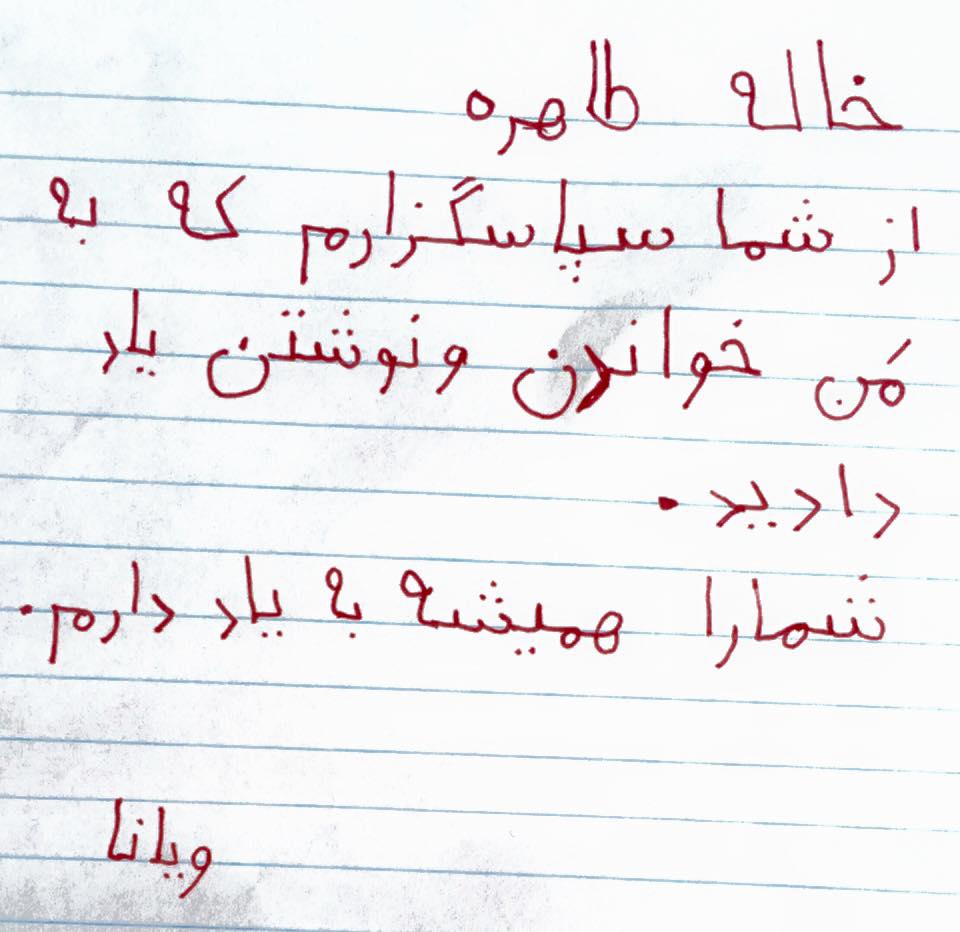 خاله طاهره
از شما سپاسگزارم که به
مَن خواندن و نوشتن یاد
دادید.
شما را همیشه به یاد دارم.
ویانا